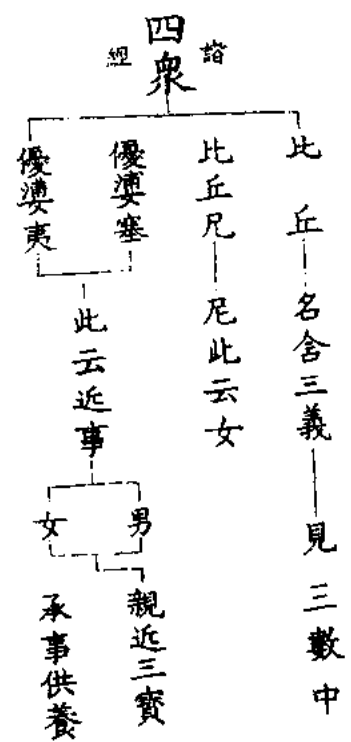 四衆
諸經
比丘
名含三義
見三數中
比丘尼
尼此云女
優婆塞
優婆夷
此云近事
男
女
親近三寶
承事供養